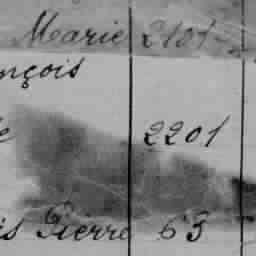 Marie 2101
nçois
e 2201
is Pierre 63